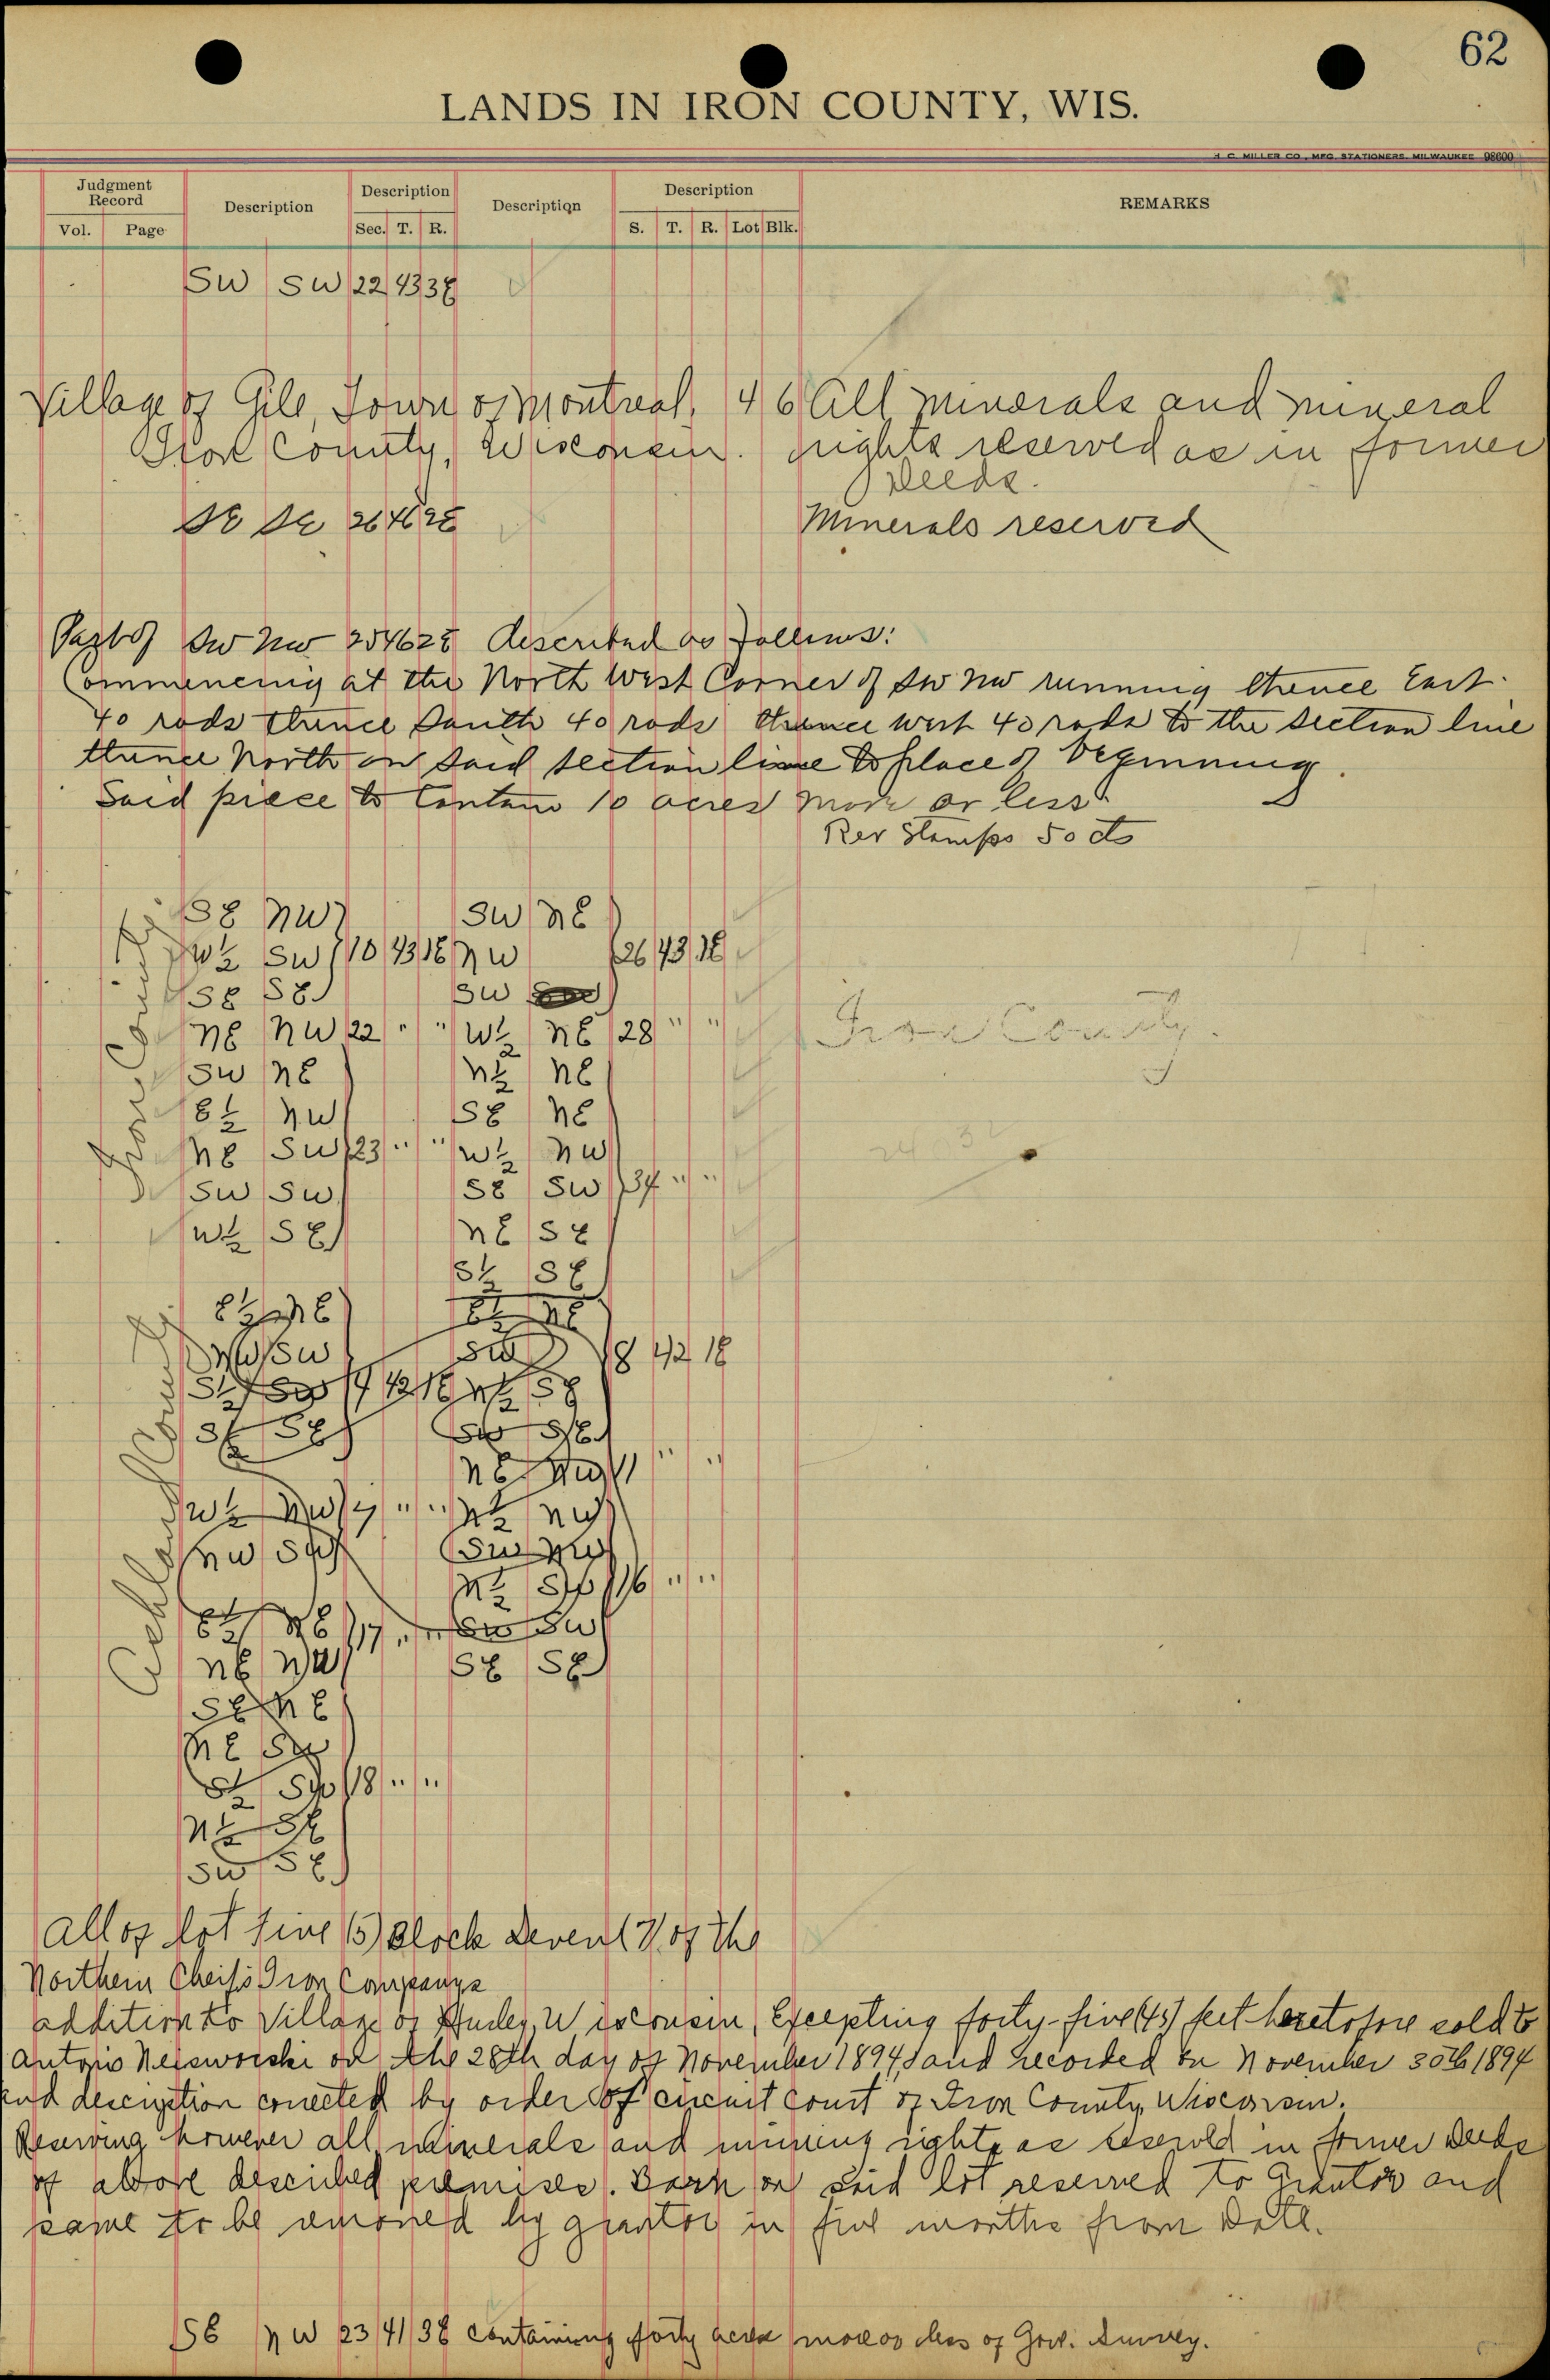 62
LANDS IN IRON COUNTY, WIS.
H. C. MILLER CO., MFG. STATIONERS, MILWAUKEE 98600
Judgment Record Description Description Description Description REMARKS
Vol. Page Sec. T. R. S. T. R. Lot Blk.
SW SW 22 43 3E
Village of Gile, Town of Montreal, 46 All minerals and mineral
Iron County, Wisconsin. rights reserved as in former
Deeds.
SE SE 26 46 2E Minerals reserved
Part of SW NW 25 46 2E described as follows:
Commencing at the North West Corner of SW NW running thence East
40 rods thence South 40 rods thence West 40 rods to the section line
thence North on said section line to place of beginning.
Said piece to contain 10 acres more or less.
Rev Stamps 50 cts
SE NW SW NE
W½ SW 10 43 1E NW 26 43 1E
SE SE SW
NE NW 22 " " W½ NE 28 " "
Iron County.
SW NE N½ NE
E½ NW SE NE
NE SW 23 " " W½ NW
SW SW SE SW 34 " "
W½ SE NE SE
S½ SE
Iron County
E½ NE E½ NE
NW SW SW 8 42 1E
S½ SW 4 42 1E N½ SE
S½ SE SW SE
NE NW " "
W½ NW " " N½ NW
NW SW SW NW
N½ SW 16 " "
E½ NE 17 " " SW SW
NE NW SE SE
Ashland County
SE NE
NE SW
S½ SW 18 " "
N½ SE
SW SE
All of Lot five (5) Block Seven (7) of the
Northern Chief's Iron Companys
addition to Village of Hurley, Wisconsin, Excepting forty-five (45) feet heretofore sold to
Antonio on the 28th day of November 1894, and recorded on November 30th 1894
and description corrected by order of circuit court of Iron County, Wisconsin.
Reserving however all minerals and mining rights as reserved in former Deeds
of above described premises. Barn on said lot reserved to Grantor and
same to be removed by grantor in five months from Date.
SE NW 23 41 3E containing forty acres more or less of Gov. Survey.